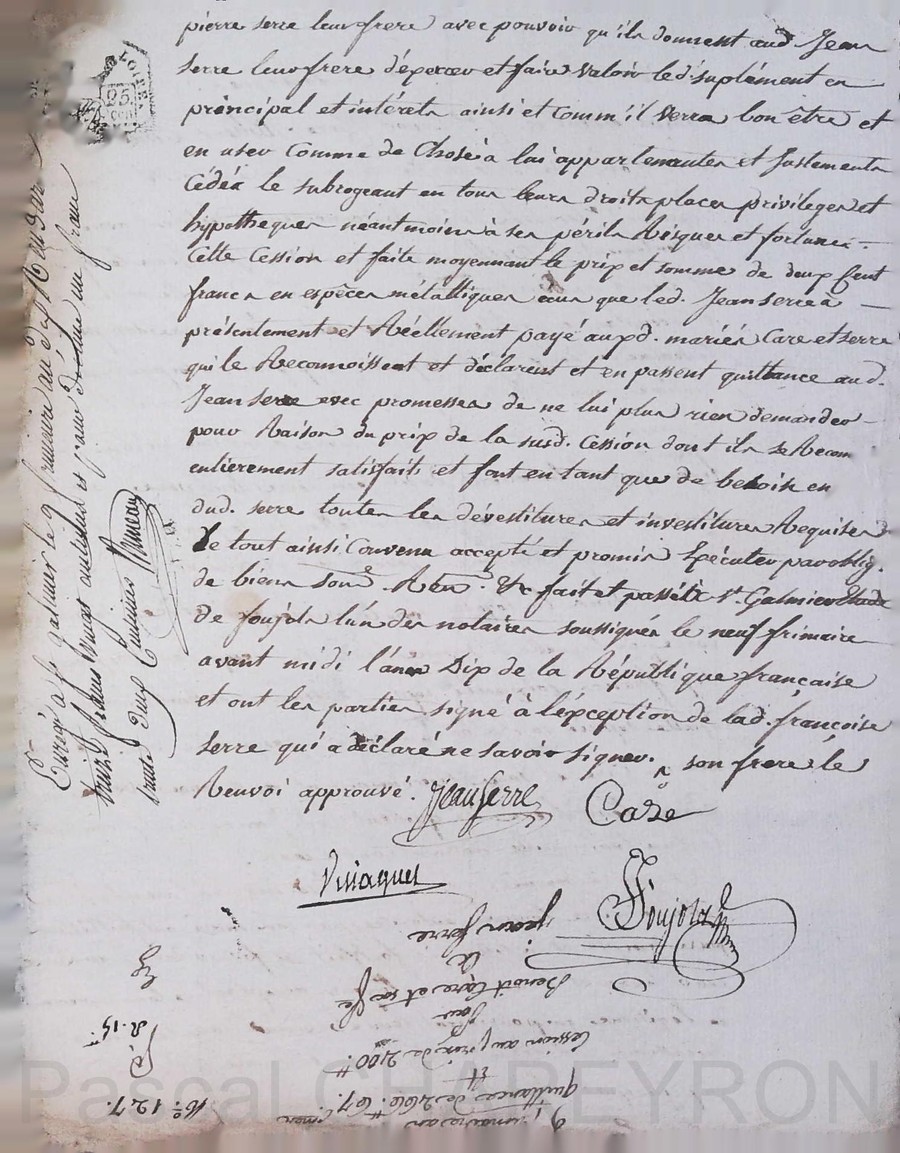 pierre serre leur frere avec pouvoir qu'ils donnent aud. Jean
serre leur frere d'éxercer et faire valoir led. suplément en
principal et intérets ainsi et comm'il verra bon être et
en user comme de choses à lui appartenantes et justement
cédés le subrogeant en tous leurs droits places privileges et
hypotheques néantmoins à ses périls Risques et fortunes.
Cette cession et faite moyennant le prix et somme de deux cent
francs en espèces métalliques que led. Jean serre a
présentement et Réellement payé auxd. mariés Care et serre
qui le Reconnoissent et déclarent et en passent quittance aud.
Jean serre avec promesses de ne lui plus rien demander
pour Raison du prix de la susd. cession dont ils se Recon
entierement satisfaits et font en tant que de besoin en
dud. serre toutes les dévestitures et investitures Requises
Le tout ainsi convenu accepté et promis éxécuter par oblig.
de biens Ren. &c fait et passé à St. Galmier
de foujols l'un des notaires soussignés le neuf frimaire
avant midi l'an Dix de la République française
et ont les parties signé à l'éxception de lad. françoise
serre qui a déclaré ne savoir signer. son frere le
Renvoi approuvé. Jean Serre Care
Foujols
jean serre
à
Benoit Care et sa fe
pour
Cession au prix de 200.tt
Et
quittance de 266.tt 67.
LOIRE
25
Enrégé à St galmier le 9 frimaire an dix
trente deux centimes
2-15.
n.º 127.
Pascal CHAPEYRON